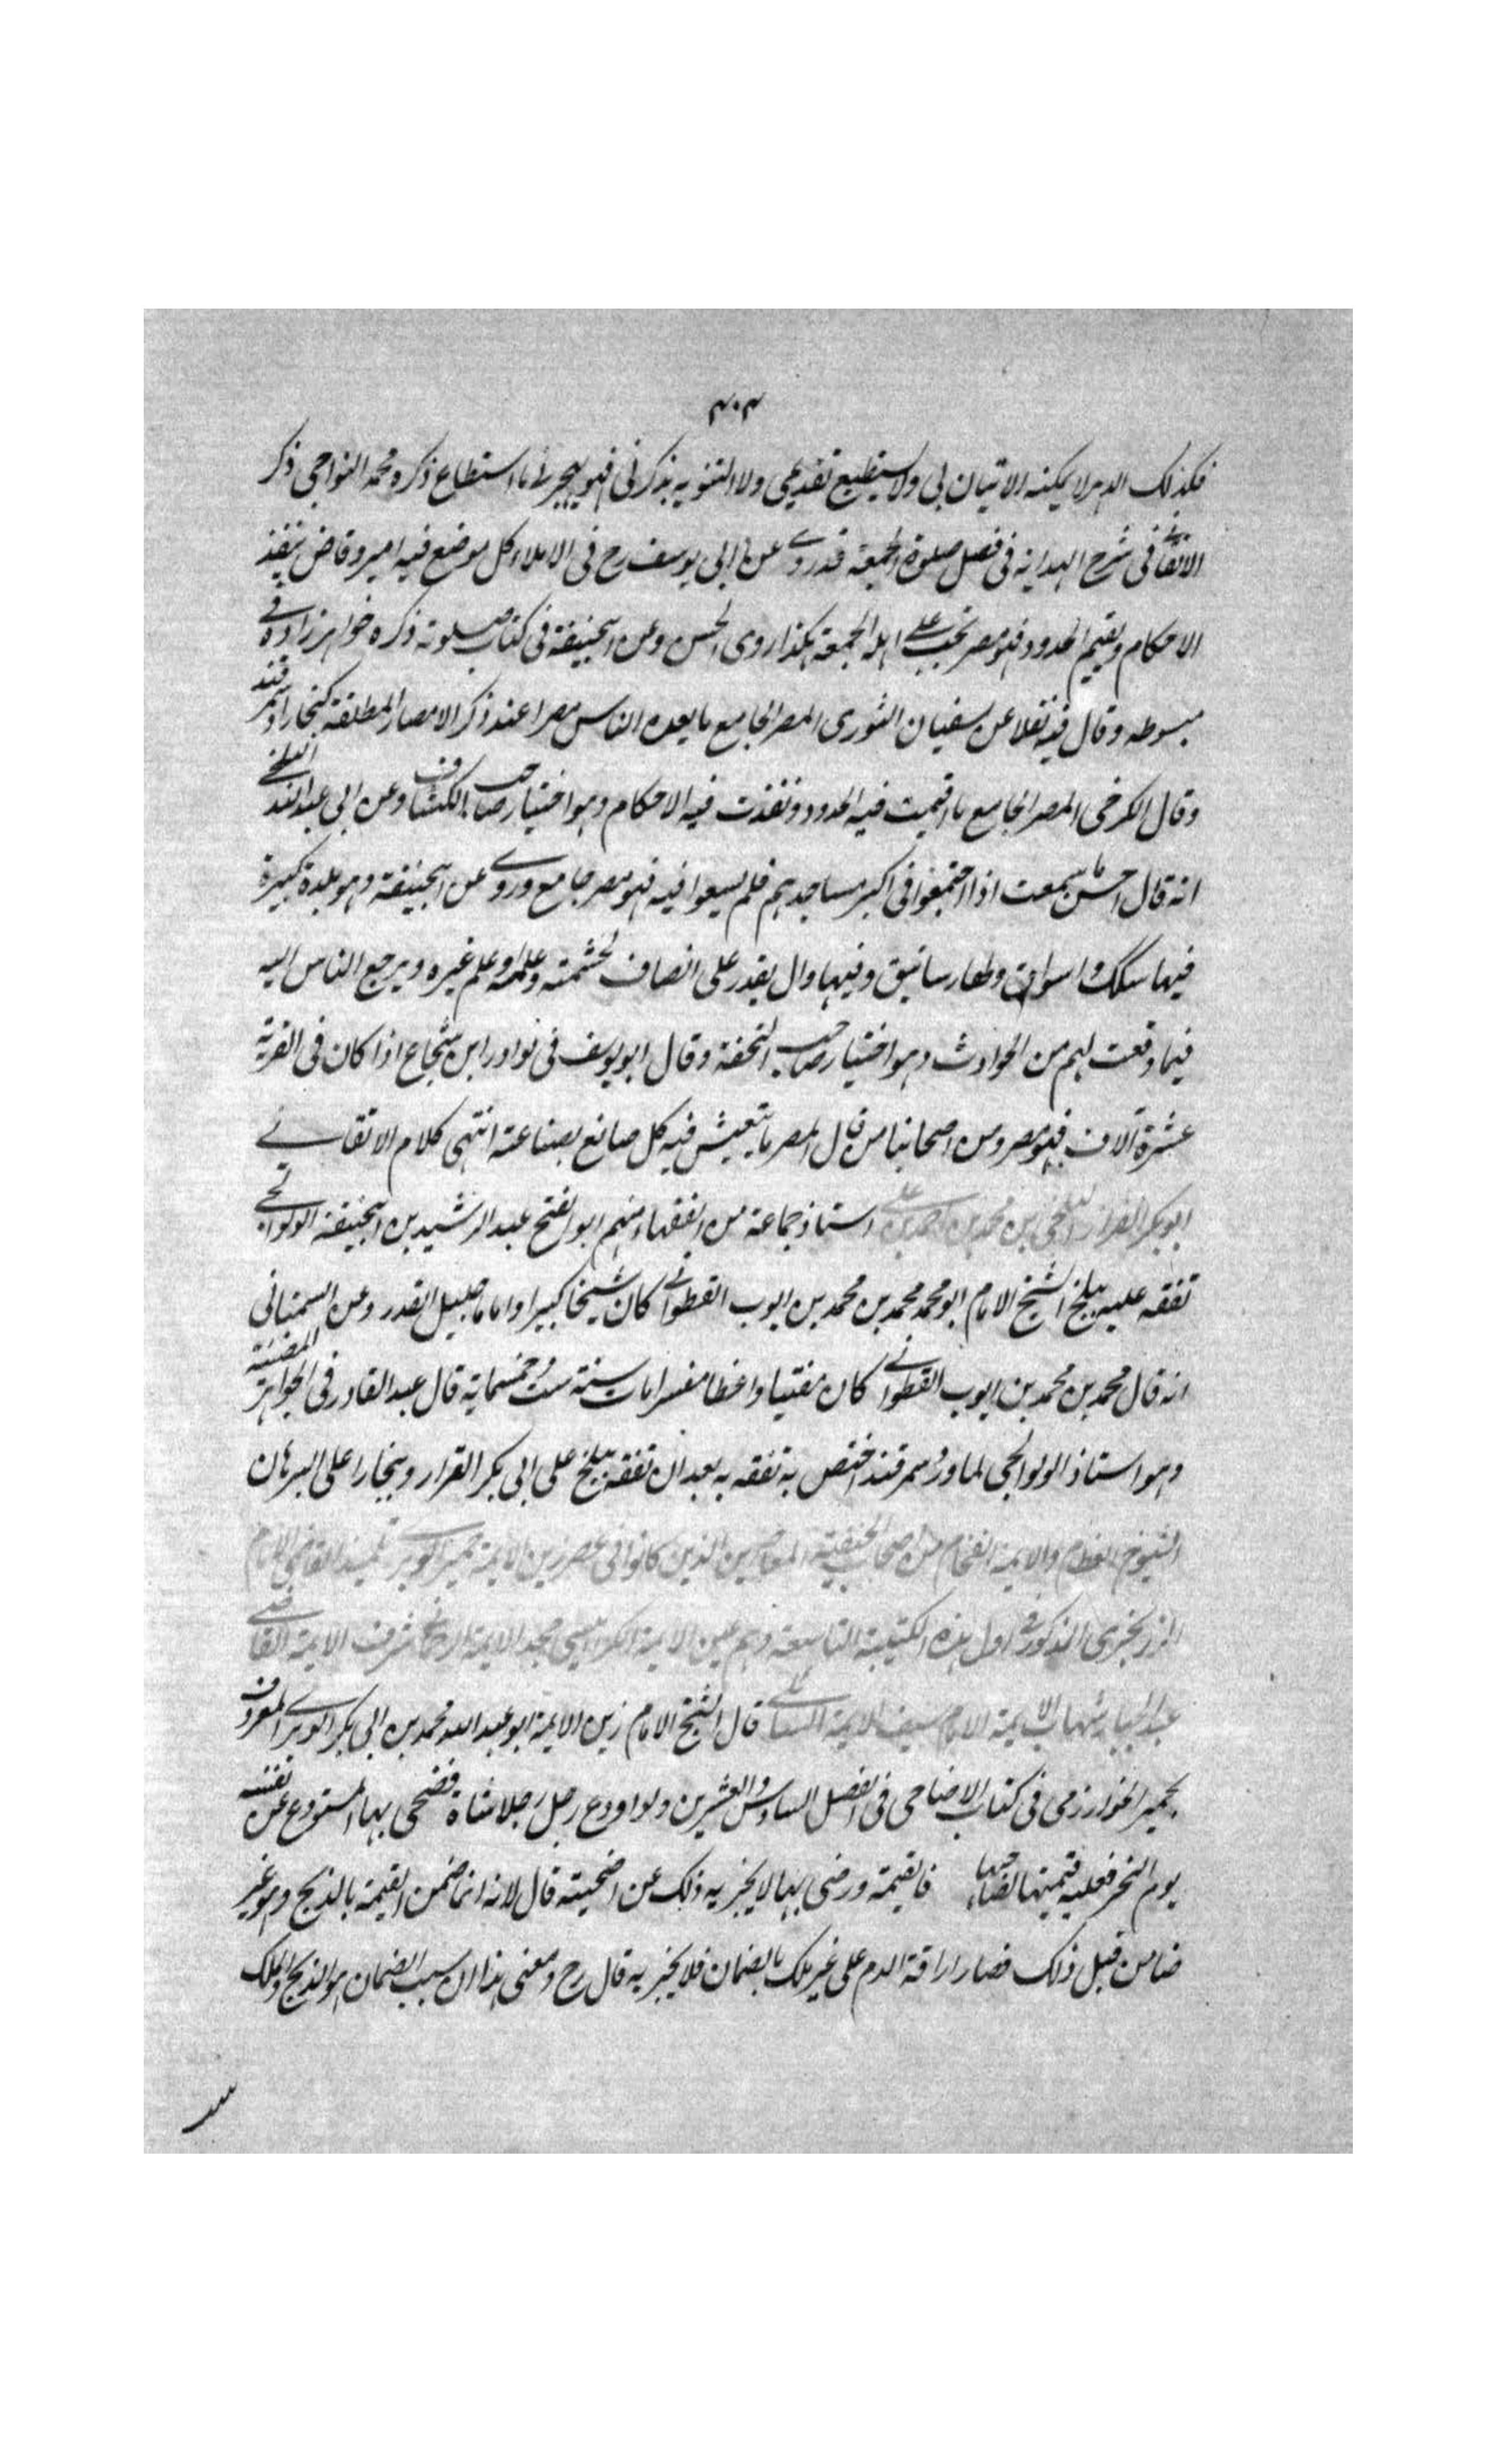 ٣٠٣
فكذلك الدهر لا يمكنه الاتيان بى ولا يستطيع تقديمى ولا التنويه بذكرنى فهو يجرى ما استطاع ذكره محمد النواجى ذكر
الاتقانى فى شرح الهداية فى فصل صلوة الجمعة قد روى عن ابى يوسف رح فى الاملاء كل موضع فيه امير وقاض ينفذ
الاحكام ويقيم الحدود فهو مصر تجب على اهله الجمعة هكذا روى الحسن وعن ابيحنيفة فى كتاب صلوته ذكره خواهرزاده فى
مبسوطه وقال فيه نقلا عن سفيان الثورى المصر الجامع ما يعده الناس مصرا عند ذكر الامصار المطلقة كبخارا وسمرقند
وقال الكرخى المصر الجامع ما اقيمت فيه الحدود ونفذت فيه الاحكام وهو اختيار صاحب الكشاف وعن ابى عبد الله البلخى
انه قال احسن ما سمعت اذا اجتمعوا فى اكبر مساجدهم فلم يسعوا فيه فهو مصر جامع وروى عن ابيحنيفة وهو بلدة كبيرة
فيها سكك واسواق ولها رساتيق وفيها وال يقدر على انصاف لحشمته وعلمه وعلم غيره ويرجع الناس اليه
فيما وقعت لهم من الحوادث وهو اختيار صاحب التحفة وقال ابو يوسف فى نوادر ابن شجاع اذا كان فى القرية
عشرة آلاف فهو مصر ومن اصحابنا من قال المصر ما يتعيش فيه كل صانع بصناعته انتهى كلام الاتقانى
ابو بكر القزاز البلخى بن محمد بن احمد بن على استاذ جماعة من الفقهاء منهم ابو الفتح عبد الرشيد بن ابيحنيفة الولوالجى
تفقه عليه ببلخ الشيخ الامام ابو محمد محمد بن محمد بن ايوب القطوانى كان شيخا كبيرا واماما جليل القدر وعن السمعانى
انه قال محمد بن محمد بن ايوب القطوانى كان مفتيا واعظا مفسرا مات سنة ست وخمسماية قال عبد القادر فى الجواهر المضيئة
وهو استاذ الولوالجى لما ورد سمرقند اختص به تفقه به بعد ان تفقه ببلخ على ابى بكر القزاز وببخارا على البرهان
الشيوخ العظام والايمة الفخام من اصحاب الحنفية المعاصرين الذين كانوا فى عصر زين الايمة خمير الوبرى تلميذ القاضى الامام
الزرنجرى المذكور فى اول هذه الكتيبة التاسعة وهم عين الايمة الكرابيسى مجد الايمة شرف الايمة القاضى
عبد الجبار شهاب الايمة الامام سيف الايمة السائلى قال الشيخ الامام زين الايمة ابو عبد الله محمد بن ابى بكر الوبرى المعروف
بخمير الخوارزمى فى كتاب الاضاحى فى الفصل السادس والعشرين ولو اودع رجل رجلا شاة فضحى بها المستودع عن نفسه
يوم النحر فعليه قيمتها لصاحبها فالقيمة ورضى بها لا يجزيه ذلك عن اضحيته قال لانه انما ضمن القيمة بالذبح وهو غير
ضامن قبل ذلك فصار اراقة الدم على غير ملك بالضمان فلا يجزيه قال رح ومعنى هذا ان سبب الضمان هو الذبح والملك